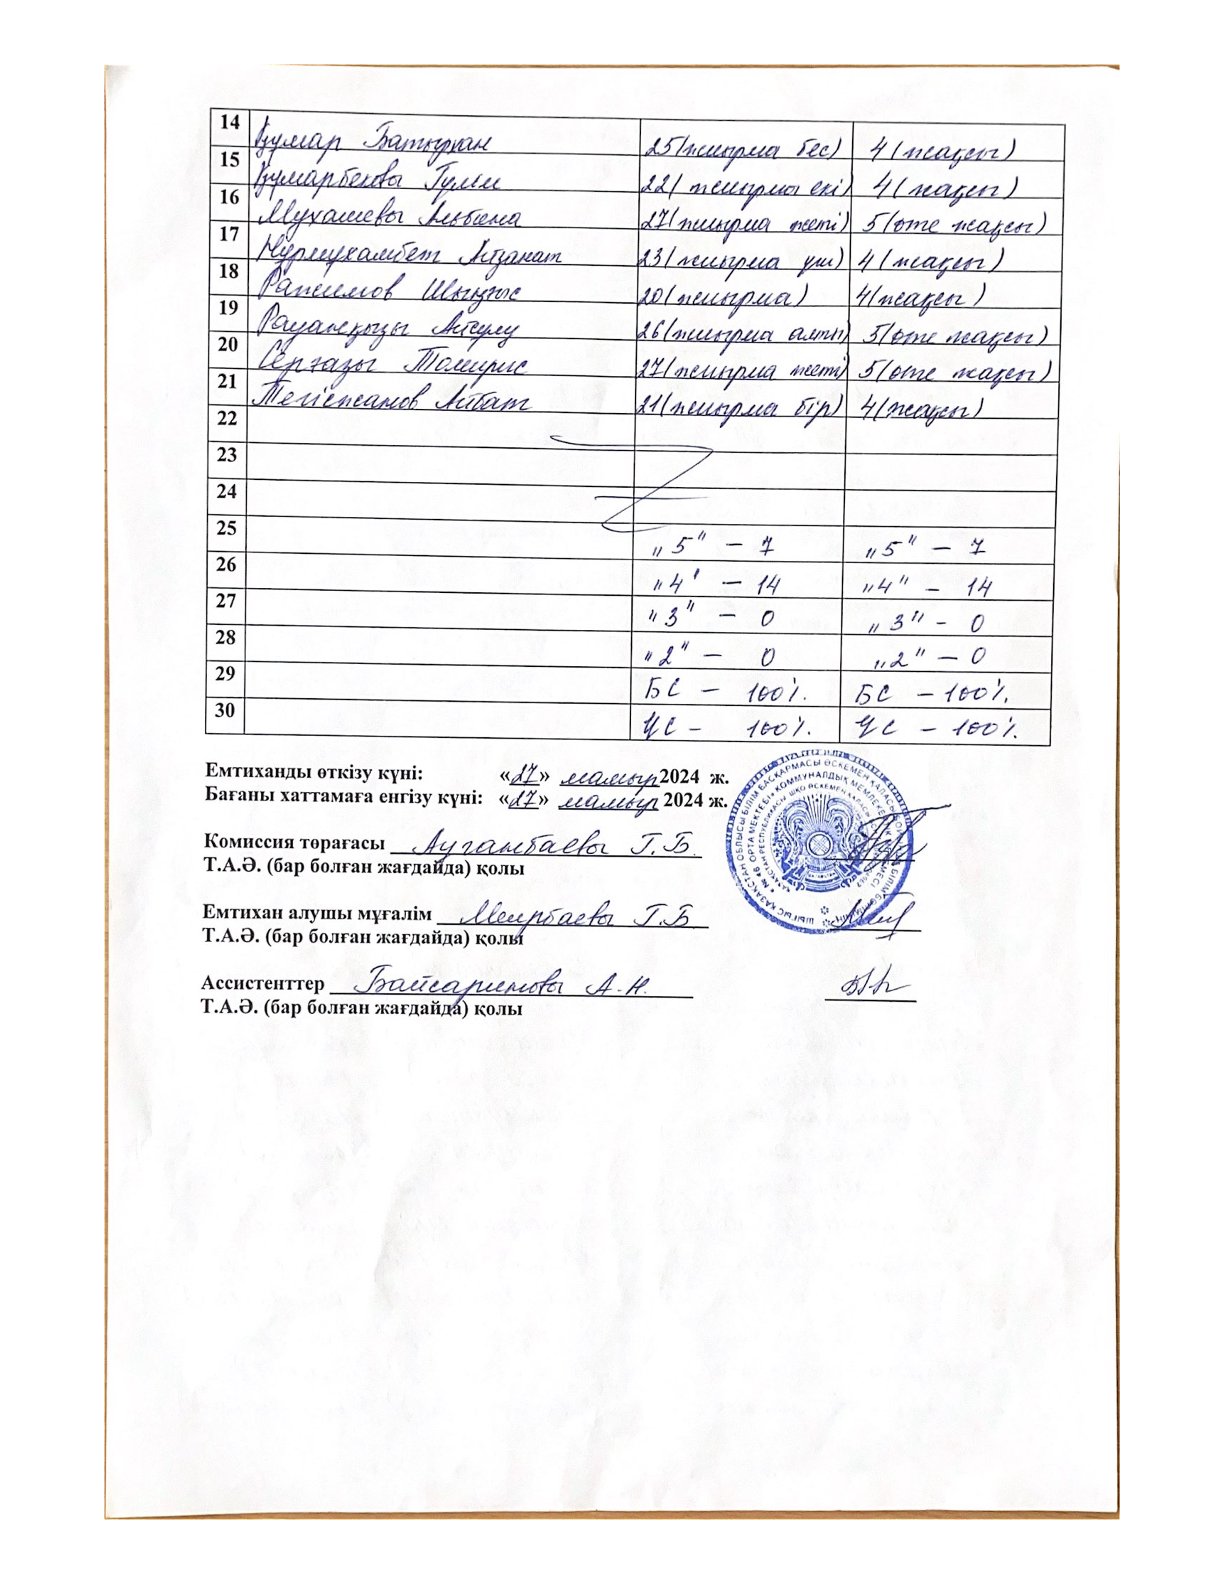 14 Құмар Батырхан 25 (жиырма бес) 4 (жақсы)
15 Құмарбекова Гүлім 22 (жиырма екі) 4 (жақсы)
16 Мухамева Альбина 27 (жиырма жеті) 5 (өте жақсы)
17 Нұрмұхамбет Айзанат 23 (жиырма үш) 4 (жақсы)
18 Рахимов Шыңғыс 20 (жиырма) 4 (жақсы)
19 Рауанқызы Айсұлу 26 (жиырма алты) 5 (өте жақсы)
20 Серғазы Томирис 27 (жиырма жеті) 5 (өте жақсы)
21 Тегісжанов Айбат 21 (жиырма бір) 4 (жақсы)
22
23
24
25 „5" – 7 „5" – 7
26 „4" – 14 „4" – 14
27 „3" – 0 „3" – 0
28 „2" – 0 „2" – 0
29 БС – 100% БС – 100%
30 ҮС – 100% ҮС – 100%
Емтиханды өткізу күні: «27» мамыр 2024 ж.
Бағаны хаттамаға енгізу күні: «27» мамыр 2024 ж.
Комиссия төрағасы Ауганбаева Г.Б.
Т.А.Ә. (бар болған жағдайда) қолы
Емтихан алушы мұғалім Меирбаева Г.Б
Т.А.Ә. (бар болған жағдайда) қолы
Ассистенттер Байсаринова А.Н.
Т.А.Ә. (бар болған жағдайда) қолы